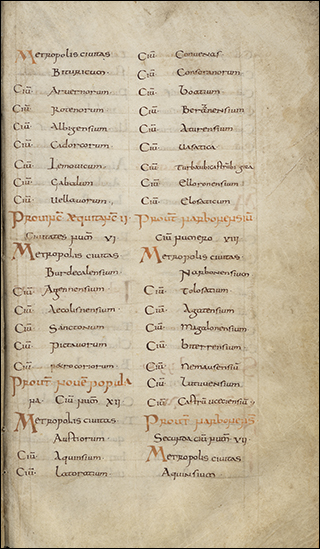 Metropolis civitas
Bituricum
Ciuī Aruernorum
Ciuī Rotenorum
Ciuī Albigensium
Ciuī Cadorcorum
Ciuī Lemovicum
Ciuī Gabalum
Ciuī Vellavorum
Provinc̄ Aequitaniē II
Civitates num̄ VI
Metropolis civitas
Burdecalensium
Ciuī Agennensium
Ciuī Aecolisnensium
Ciuī Sanctonum
Ciuī Pictavorum
Ciuī petrocoriorum
Provin̄c novē popula
na Ciuī num̄ XII
Metropolis civitas
Austiorum
Ciuī Aquinsium
Ciuī Latoratium
Ciuī Convenas
Ciuī Consoranorum
Ciuī Boatium
Ciuī Aturensium
Ciuī Vasatica
Ciuī
Ciuī Elloronensium
Ciuī Elosaticum
Provin̄c Narbonensiū
Ciuī numero VIII
Metropolis civitas
Narbonensium
Ciuī Tolosatium
Ciuī Agatensium
Ciuī Magalonensium
Ciuī Biterrensium
Ciuī Nemausensiū
Ciuī Lutuvensium
Ciuī Castrū uceciensiū
Provin̄c Narbonens̄
Secunda ciuī num̄ VII
Metropolis civitas
Aquinsium